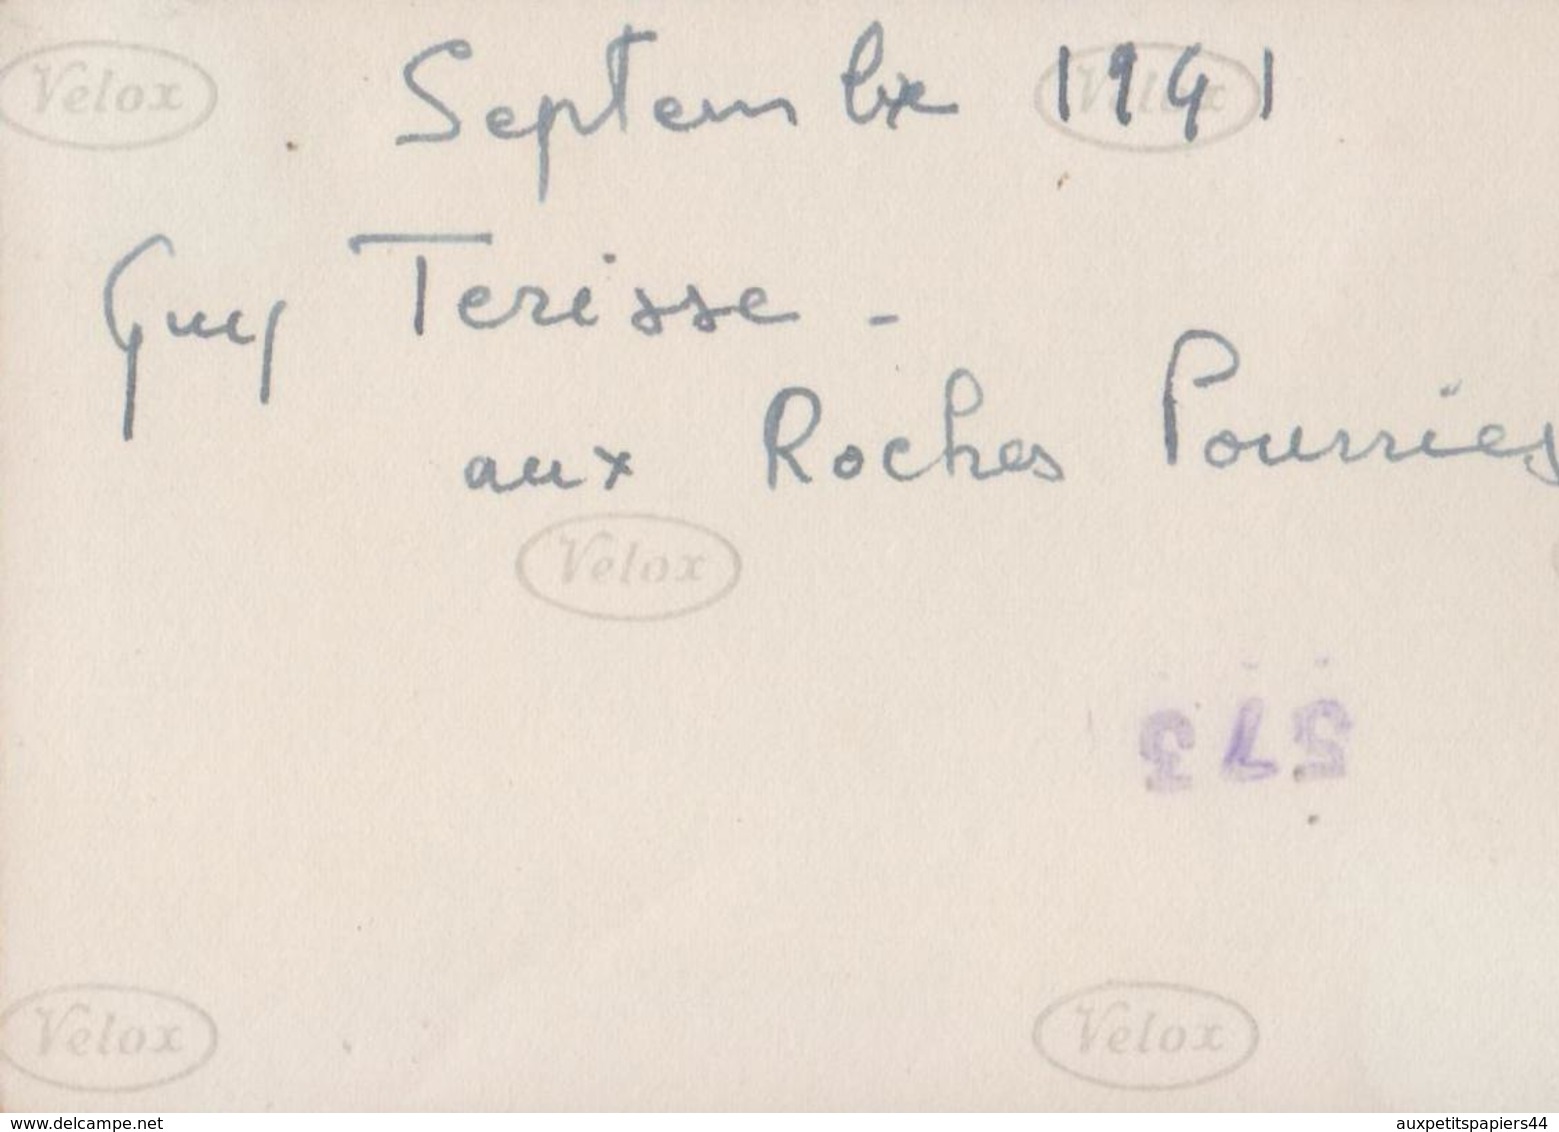 Velox
Septembre 1941
Velox
Guy Terisse -
aux Roches Pourries
Velox
573
Velox
Velox
delcampe.net
auxpetitspapiers44